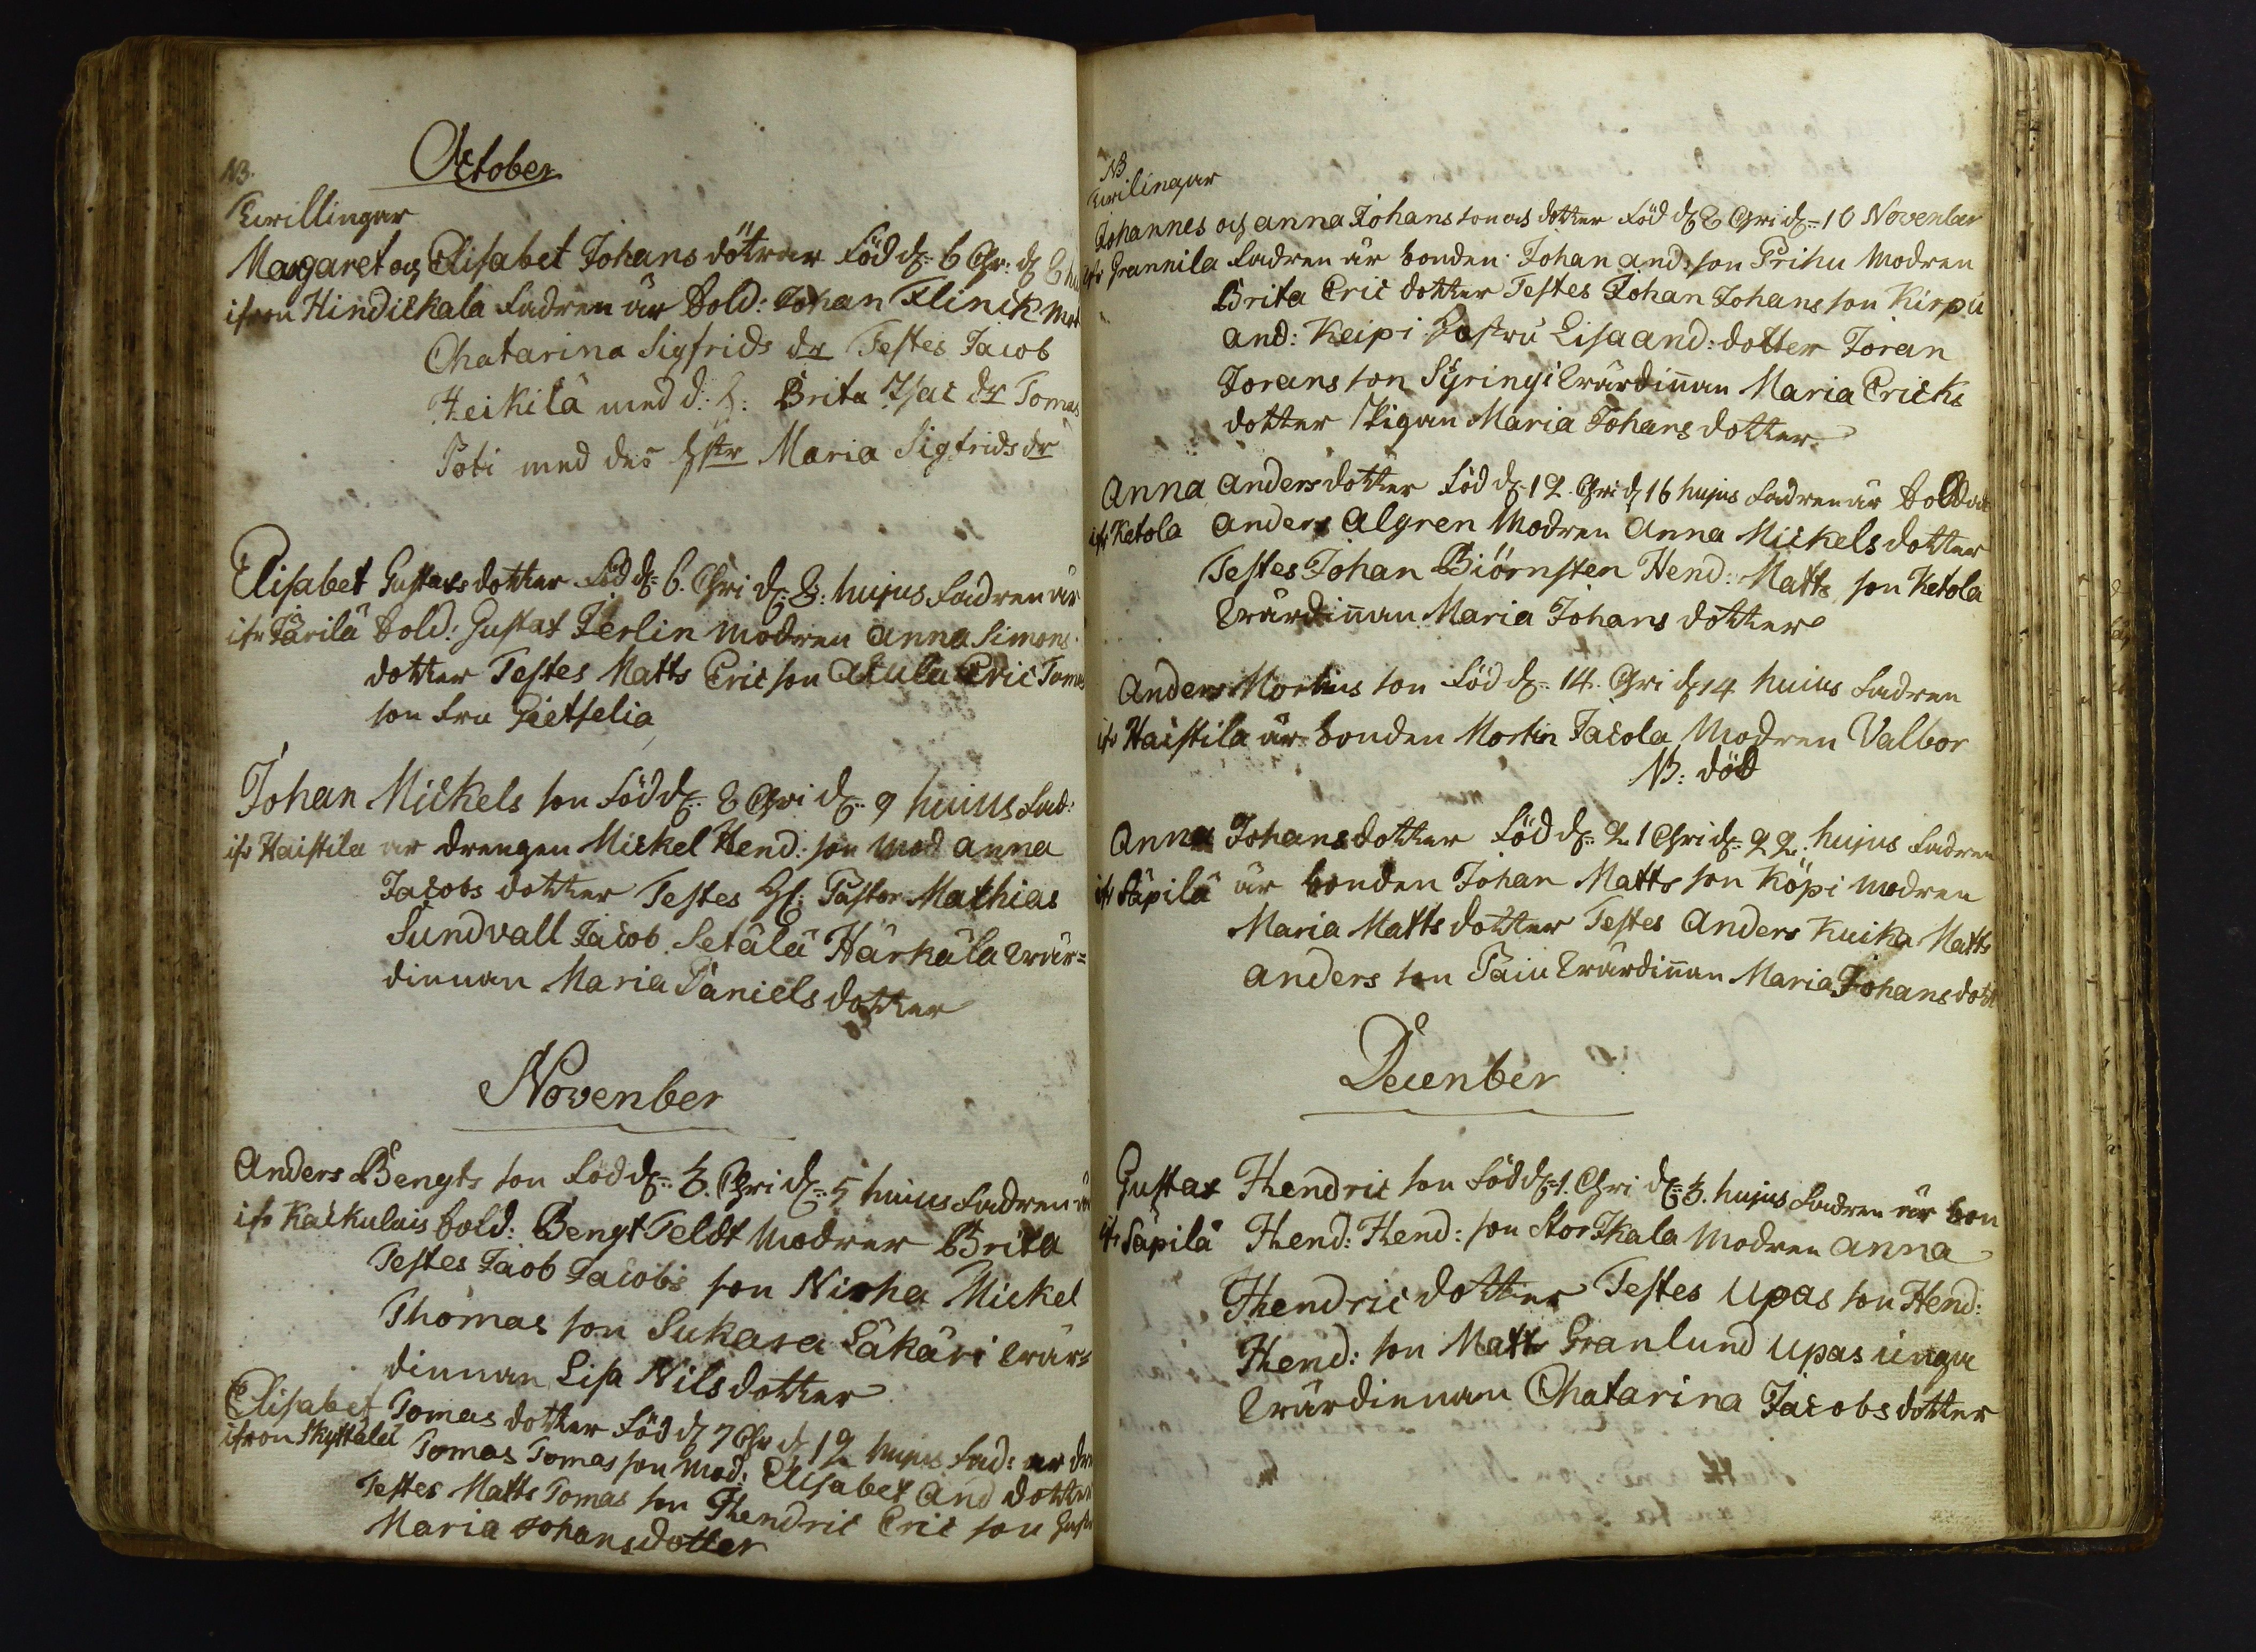 October
NB.
Twillingar
Margaret och Elisabet Johans dötrar Född d: 6 Chr: d: 8 hu
ifron Hindickala Fadren är Sold: Johan Flinck Mod
Chatarina Sigfrids dr Testes Jacob
Heikilä med d: h: Brita Isac dr Tomas
Poti med des hstr Maria Sigfrids dr
Elisabet Gustafs dotter Född d: 6. Chri d: 8: hujus Fadren är
ifr Tärilä Sold: Gustaf Ferlin Modren Anna Simons
dotter Testes Matts Eric son Akula Eric Tomas
son Fru Pietselia
Johan Mickels son Född d: 8 Chri d: 9 huius Fad:
ifr Haistila är Drengen Mickel Hend: son Mod Anna
Jacobs dotter Testes H: Pastor Mathias
Sundvall Jacob Setälä Härkälä Wär=
dinnan Maria Daniels dotter
November
Anders Bengts son Född d: 3. Chri d: 5 huius Fadren är
ifr Kaikulais Sold: Bengt Feldt Modrer Brita
Testes Jaob Jacobs son Nirha Mickel
Thomas son Sukara Säkäri Wär=
dinnan Lisa Nils dotter
Elisabet Tomas dotter Född d: 7 Chr d: 12 hujus Fad: är dre
ifron Skyttälä Tomas Tomas son Mod: Elisabet And dotter
Testes Matts Tomas son Hendric Eric son
Maria Johansdotter
NB
Twilingar
Johannes och Anna Johans son och dotter Född d: 8 Chri d: 10 November
ifr Grannila Fadren är bonden Johan And: son Prihu Modren
Brita Eric dotter Testes Johan Johans son Kirpu
And: Keipi Hostru Lisa And: dotter Joran
Jorans son Syringi Wärdinnan Maria Ericks
dotter Pigan Maria Johans dotter
Anna Anders dotter Född d: 12. Chri d: 16 hujus Fadren är Soldat
ifr Ketola Anders Algren Modren Anna Mickels dotter
Testes Johan Biörnsten Hend: Matts son Ketola
Wärdinnan Maria Johans dotter
Anders Mortins son Född d: 14. Chri d: 14 huius Fadren
ifr Haistila är bonden Mortin Jacola Modren Valbor
NB: död
Anna Johans dotter Född d: 21 Chri d: 22. hujus Fadren
ifr Säpilä är bonden Johan Matts son Köpi Modren
Maria Matts dotter Testes Anders Kuika Matts
Anders son Paiu Wärdinnan Maria Johans dott
Decenber
Gustaf Hendric son Född d: 1. Chri d: 3. hujus Fadren är bon
ifr Säpilä Hend: Hend: son Stor Ikala Modren Anna
Hendric dotter Testes Upas son Hend:
Hend: son Matts Granlund Upas unga
Wärdinnan Chatarina Jacobs dotter